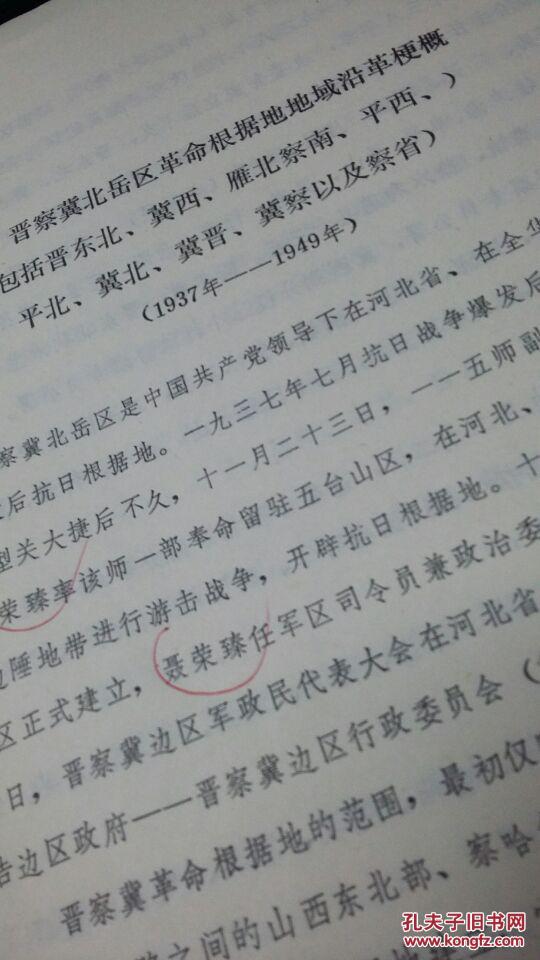 晋察冀北岳区革命根据地地域沿革梗概
包括晋东北、冀西、雁北察南、平西、)
平北、冀北、冀晋、冀察以及察省)
(1937年——1949年)
察冀北岳区是中国共产党领导下在河北省、在全华
后抗日根据地。一九三七年七月抗日战争爆发后
型关大捷后不久，十一月二十三日，一一五师副
荣臻率该师一部奉命留驻五台山区，在河北、
陲地带进行游击战争，开辟抗日根据地。十
区正式建立，聂荣臻任军区司令员兼政治委
日，晋察冀边区军政民代表大会在河北省
告边区政府——晋察冀边区行政委员会（
晋察冀革命根据地的范围，最初仅
之间的山西东北部、察哈
孔夫子旧书网
www.kongfz.com